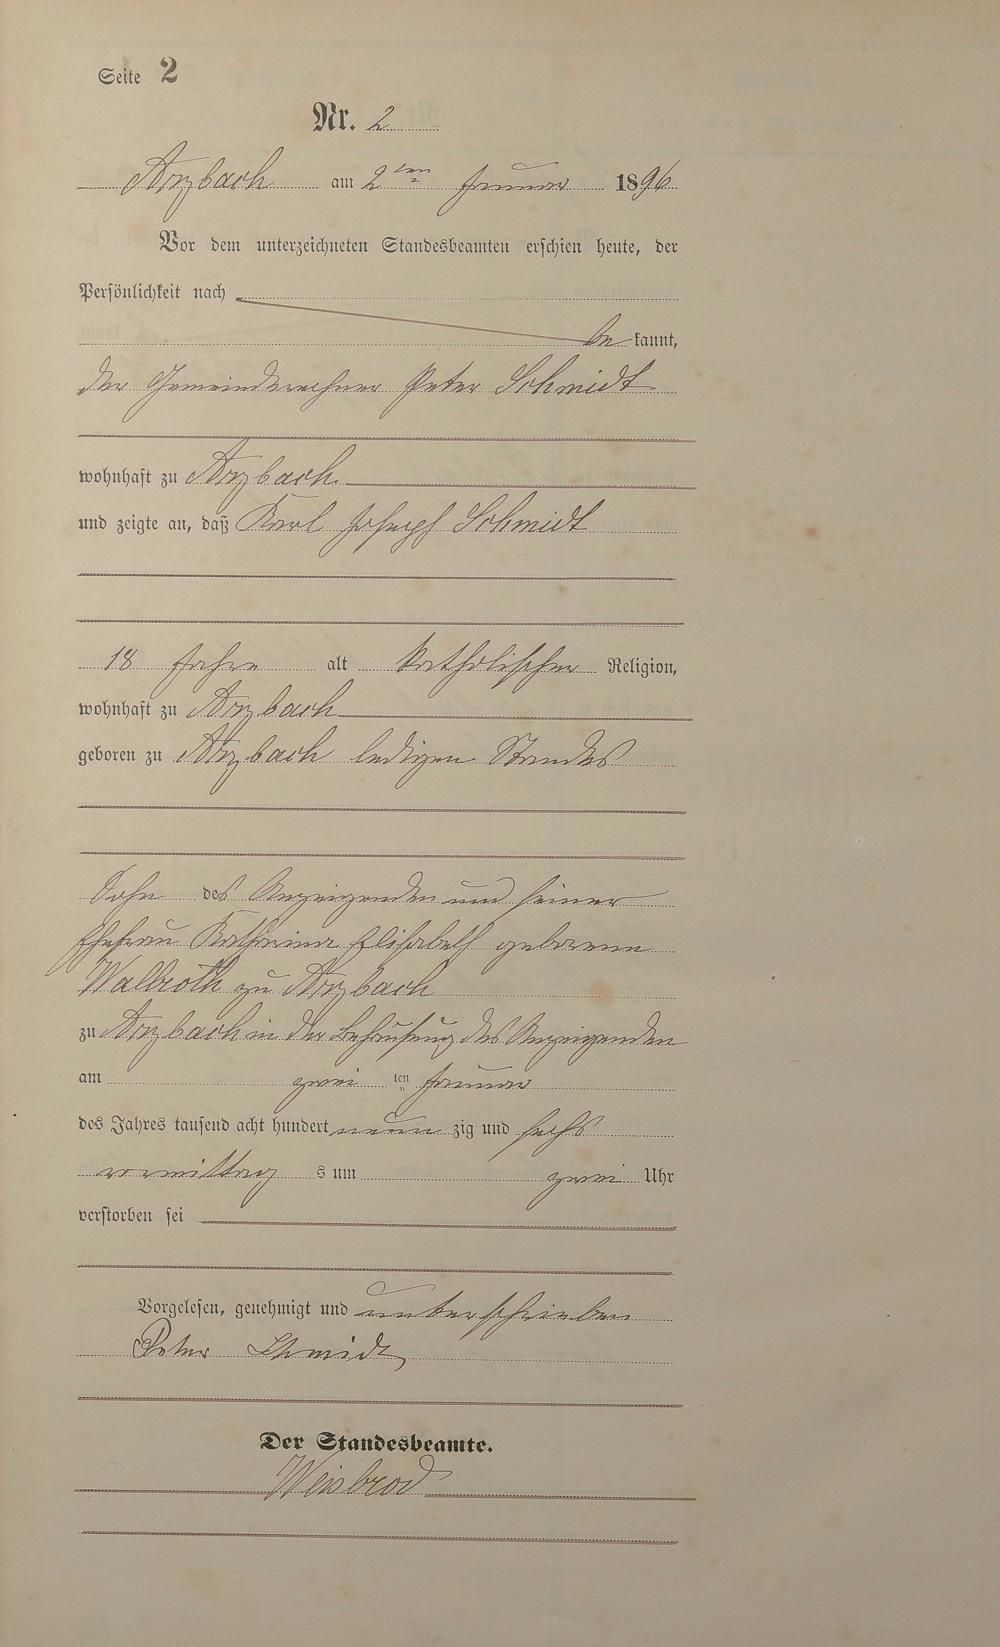 Seite 2
Nr. 2
Arzbach am 2ten Januar 1896
Vor dem unterzeichneten Standesbeamten erschien heute, der
Persönlichkeit nach
be kannt,
der Gemeinderechner Peter Schmidt
wohnhaft zu Arzbach
und zeigte an, daß Karl Joseph Schmidt
18 Jahre alt katholischer Religion,
wohnhaft zu Arzbach
geboren zu Arzbach ledigen Standes
Sohn des Anzeigenden und seiner
Ehefrau Katharina Elisabeth geborene
Walbroth zu Arzbach
zu Arzbach in der Behausung des Anzeigenden
am zwei ten Januar
des Jahres tausend acht hundert neun zig und sechs
vormittag s um zwei Uhr
verstorben sei
Vorgelesen, genehmigt und unterschrieben
Peter Schmidt
Der Standesbeamte.
Weisbrod